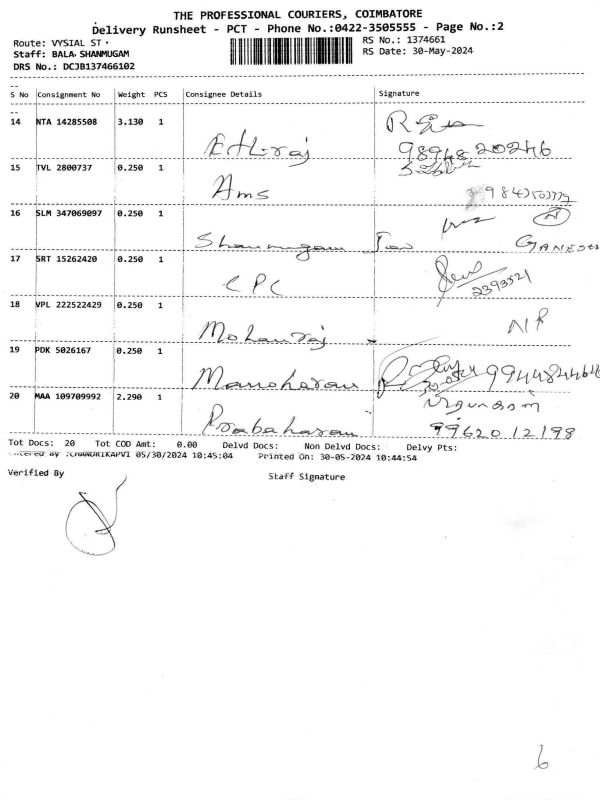 THE PROFESSIONAL COURIERS, COIMBATORE
Delivery Runsheet - PCT - Phone No.:0422-3505555 - Page No.:2
Route: VYSIAL ST
RS No.: 1374661
Staff: BALA SHANMUGAM
RS Date: 30-May-2024
DRS No.: DCJB137466102
S No Consignment No Weight PCS Consignee Details Signature
14 NTA 14285508 3.130 1
98948 20246
15 TVL 2800737 0.250 1 Ams
16 SLM 347069097 0.250 1 Shanmugam GANESH
17 SRT 15262420 0.250 1 CPC
2393521
18 VPL 222522429 0.250 1 Mohanraj
19 PDK 5026167 0.250 1 Manoharan
20 MAA 109709992 2.290 1 Prabaharan பிரபாகரன்
9962012198
Tot Docs: 20 Tot COD Amt: 0.00 Delvd Docs: Non Delvd Docs: Delvy Pts:
Entered By :CHANDRIKAPVI 05/30/2024 10:45:04 Printed On: 30-05-2024 10:44:54
Verified By Staff Signature
6